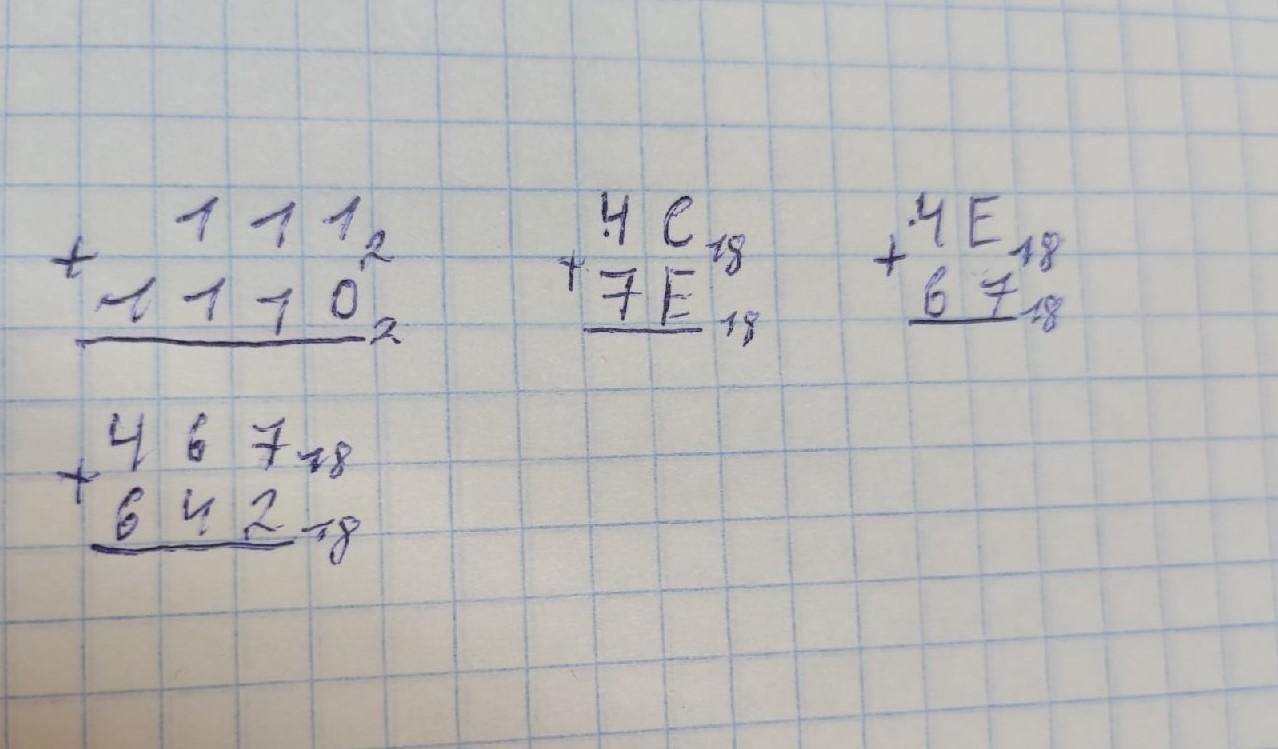 + 111₂ 1110₂
+ 4C₁₈ 7E₁₈
+ 4E₁₈ 67₁₈
+ 467₁₈ 642₁₈